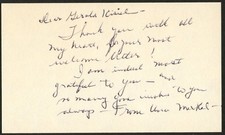 Dear Gerald
Thank you with all
my heart, for your most
welcome letter!
I am indeed most
grateful to you — and
so many good wishes to you
always — From